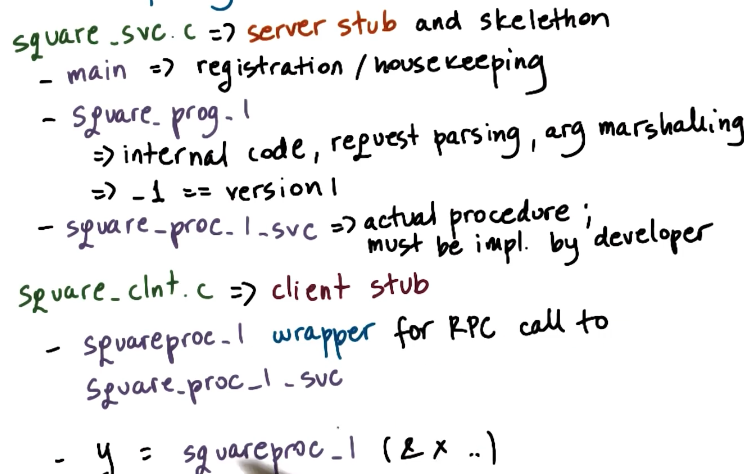 square_svc.c => server stub and skelethon
- main => registration / housekeeping
- square_prog_1
=> internal code, request parsing, arg marshalling
=> _1 == version 1
- square_proc_1_svc => actual procedure;
must be impl. by developer
square_clnt.c => client stub
- squareproc_1 wrapper for RPC call to
square_proc_1_svc
- y = squareproc_1 (&x ..)